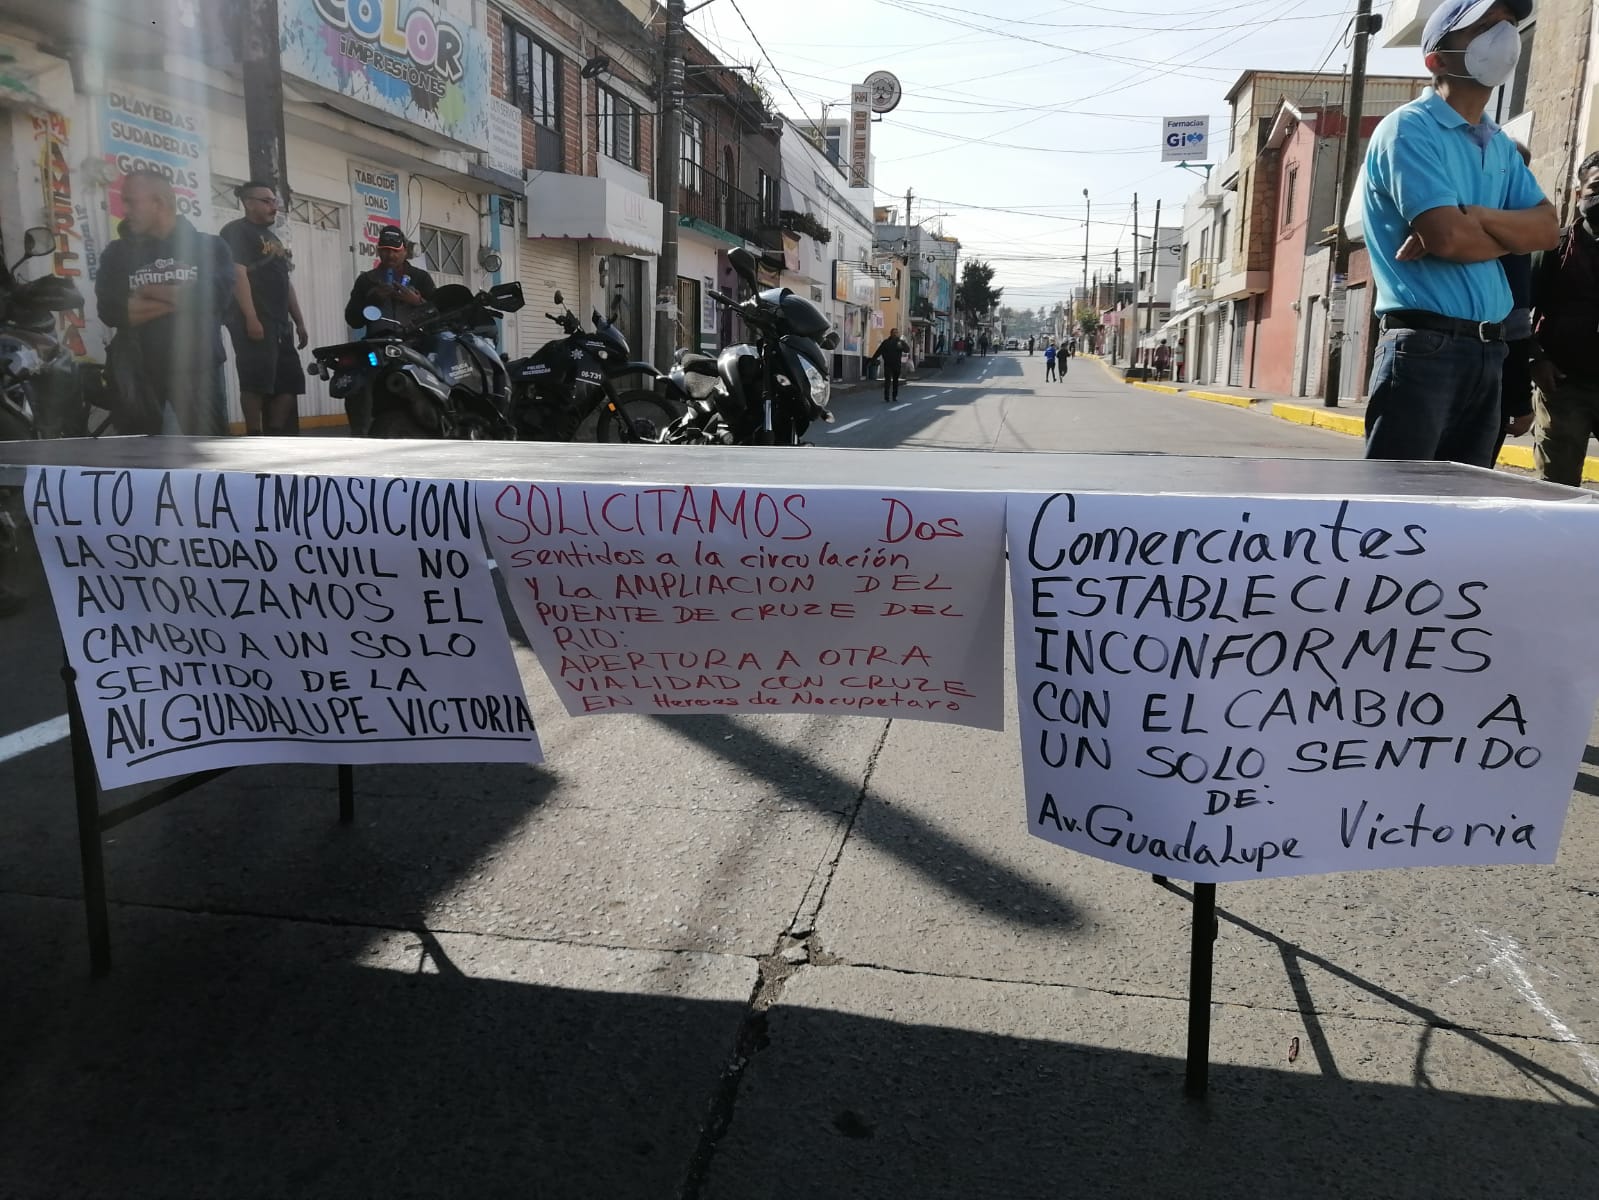 COLOR
IMPRESIONES
PLAYERAS
SUDADERAS
GORRAS
TABLOIDE
LONAS
Farmacias
Gi
POLICÍA
MICHOACÁN
06-731
CHAMPIONS
ALTO A LA IMPOSICION
LA SOCIEDAD CIVIL NO
AUTORIZAMOS EL
CAMBIO A UN SOLO
SENTIDO DE LA
AV. GUADALUPE VICTORIA
SOLICITAMOS Dos
sentidos a la circulación
y La AMPLIACION DEL
PUENTE DE CRUZE DEL
RIO:
APERTURA A OTRA
VIALIDAD CON CRUZE
EN Heroes de Nocupetaro
Comerciantes
ESTABLECIDOS
INCONFORMES
CON EL CAMBIO A
UN SOLO SENTIDO
DE:
Av. Guadalupe Victoria